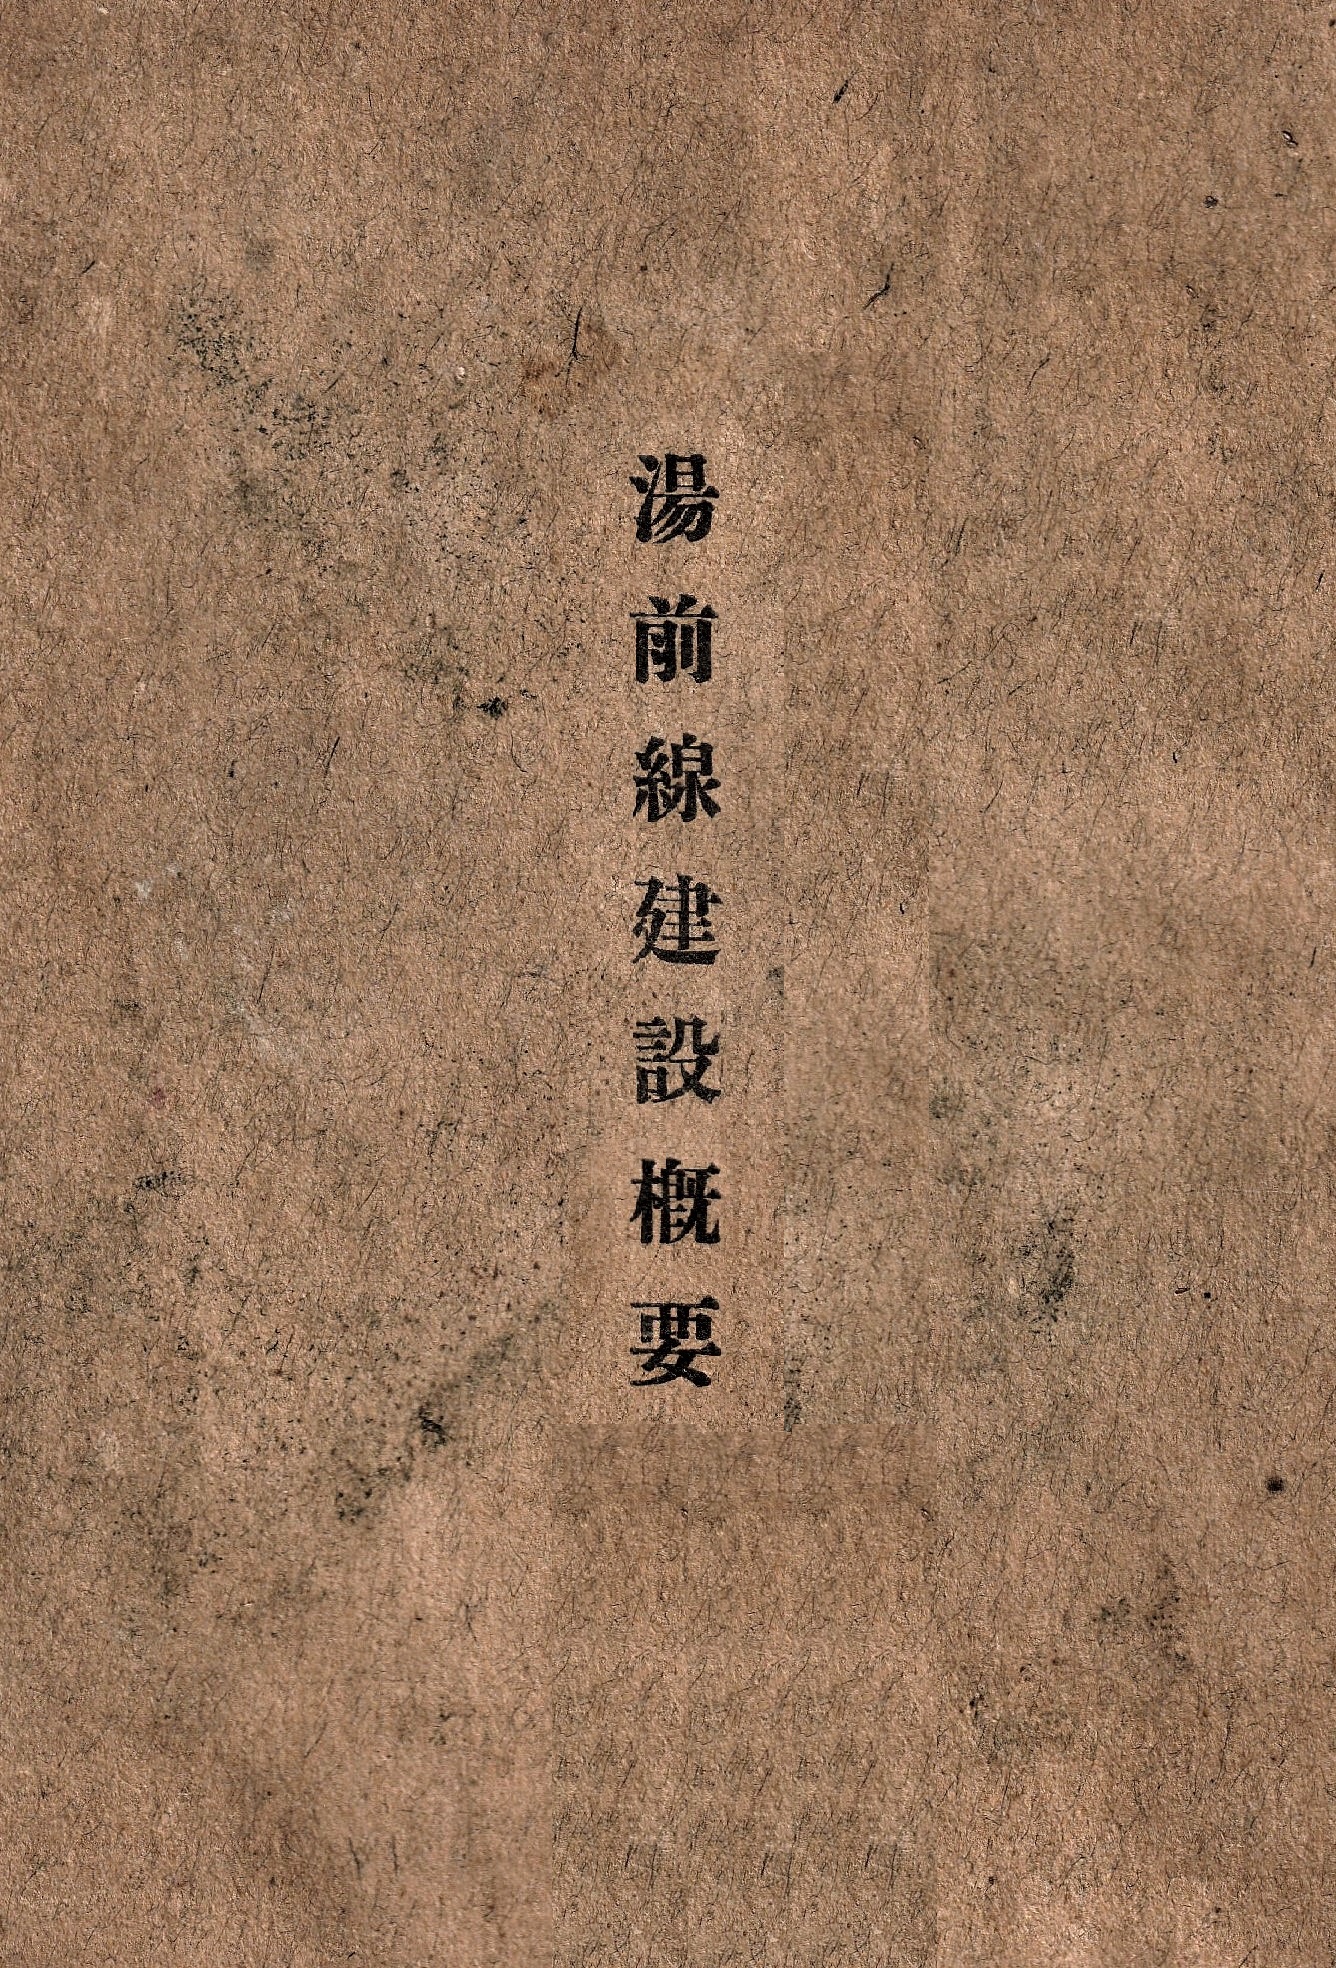 湯前線建設概要